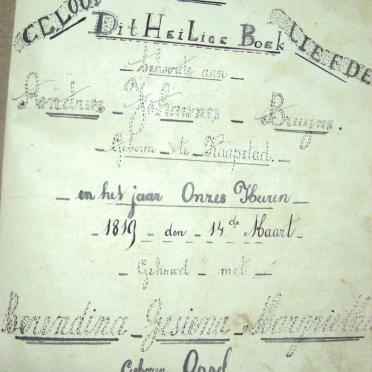 GELOOF
LIEFDE
Dit Heilige Boek
behoorde aan
Andries Johannes Bruyns.
Geboren te Kaapstad.
in het jaar Onzes Heeren
1819 den 14de Maart
Gehuwd met
Berendina Gesiena Margrietha
Geboren